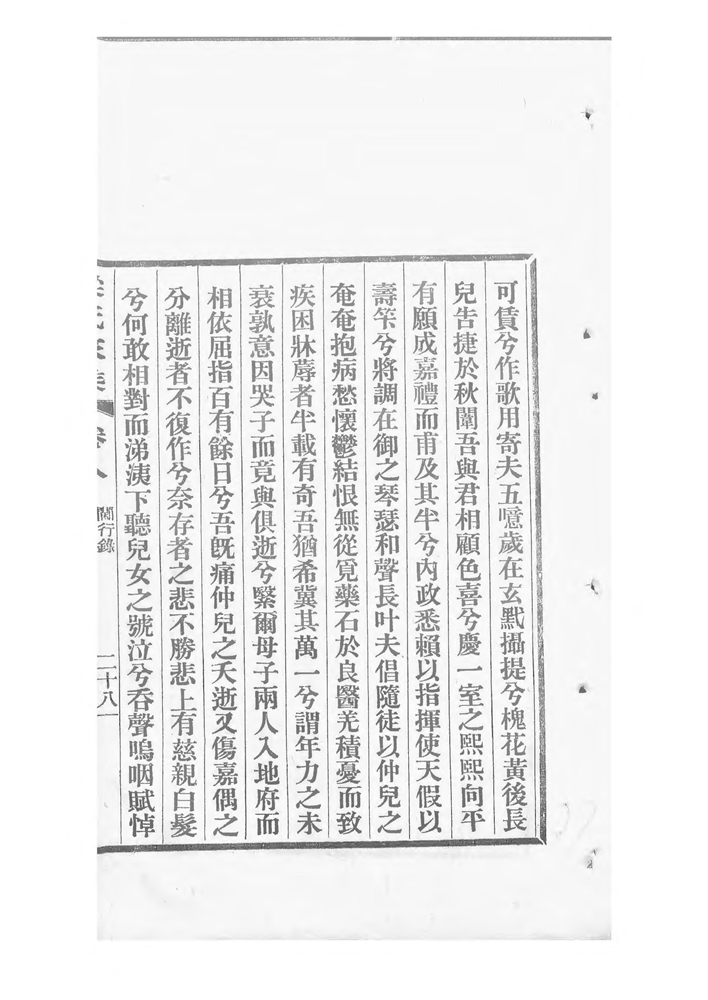 可賃兮作歌用寄夫五噫歲在玄黓攝提兮槐花黃後長
兒告捷於秋闈吾與君相顧色喜兮慶一室之熙熙向平
有願成嘉禮而甫及其半兮內政悉賴以指揮使天假以
壽筭兮將調在御之琴瑟和聲長叶夫倡隨徒以仲兒之
奄奄抱病愁懷鬱結恨無從覓藥石於良醫羌積憂而致
疾困牀蓐者半載有奇吾猶希冀其萬一兮謂年力之未
衰孰意因哭子而竟與俱逝兮繄爾母子兩人入地府而
相依屈指百有餘日兮吾旣痛仲兒之夭逝又傷嘉偶之
分離逝者不復作兮奈存者之悲不勝悲上有慈親白髮
兮何敢相對而涕洟下聽兒女之號泣兮吞聲嗚咽賦悼
氏家集 卷八 閑行錄 二十八